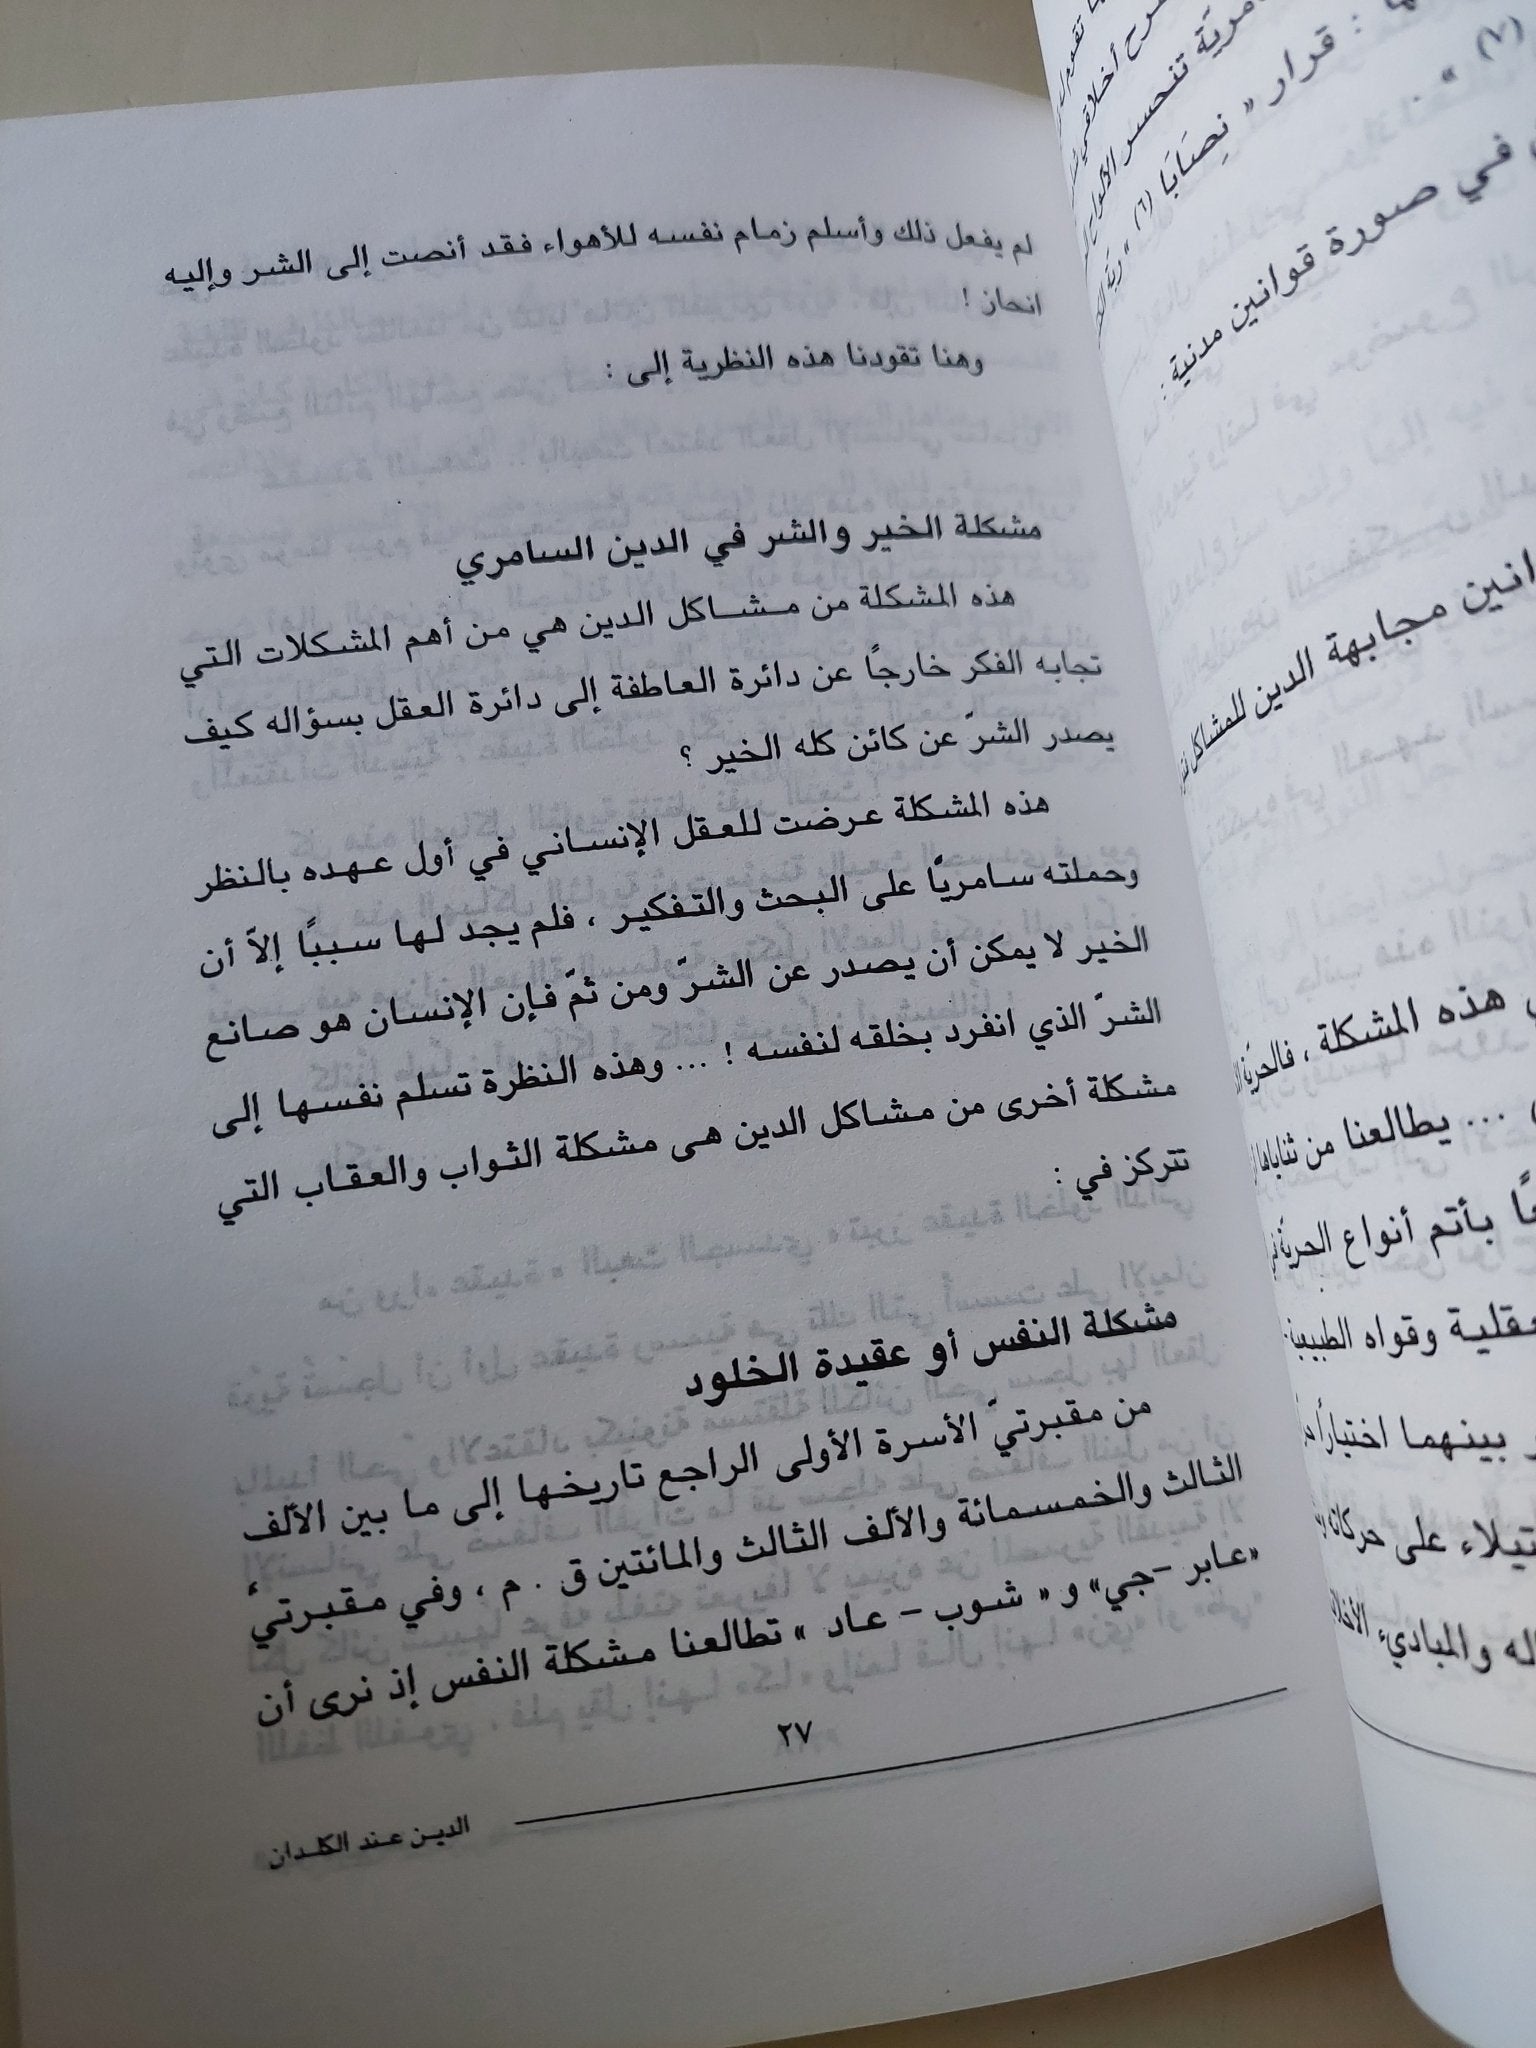 لم يفعل ذلك وأسلم زمام نفسه للأهواء فقد أنصت إلى الشر وإليه
انحاز !
وهنا تقودنا هذه النظرية إلى :
مشكلة الخير والشر في الدين السامري
هذه المشكلة من مشاكل الدين هي من أهم المشكلات التي
تجابه الفكر خارجاً عن دائرة العاطفة إلى دائرة العقل بسؤاله كيف
يصدر الشرّ عن كائن كله الخير ؟
هذه المشكلة عرضت للعقل الإنساني في أول عهده بالنظر
وحملته سامريًا على البحث والتفكير ، فلم يجد لها سببًا إلاّ أن
الخير لا يمكن أن يصدر عن الشرّ ومن ثمّ فإن الإنسان هو صانع
الشرّ الذي انفرد بخلقه لنفسه ! ... وهذه النظرة تسلم نفسها إلى
مشكلة أخرى من مشاكل الدين هى مشكلة الثواب والعقاب التي
تتركز في :
مشكلة النفس أو عقيدة الخلود
من مقبرتيّ الأسرة الأولى الراجع تاريخها إلى ما بين الألف
الثالث والخمسمائة والألف الثالث والمائتين ق . م ، وفي مقبرتيْ
«عابر -جي» و « شوب - عاد » تطالعنا مشكلة النفس إذ نرى أن
٢٧
الدين عند الكلدان
: قرار « نِصَابَا (٦) »
(٧) »
في صورة قوانين مدنية :
مجابهة الدين للمشاكل
هذه المشكلة ،
... يطالعنا من ثناياها
بأتم أنواع
وقواه الطبيعية
بينهما
على حركاته